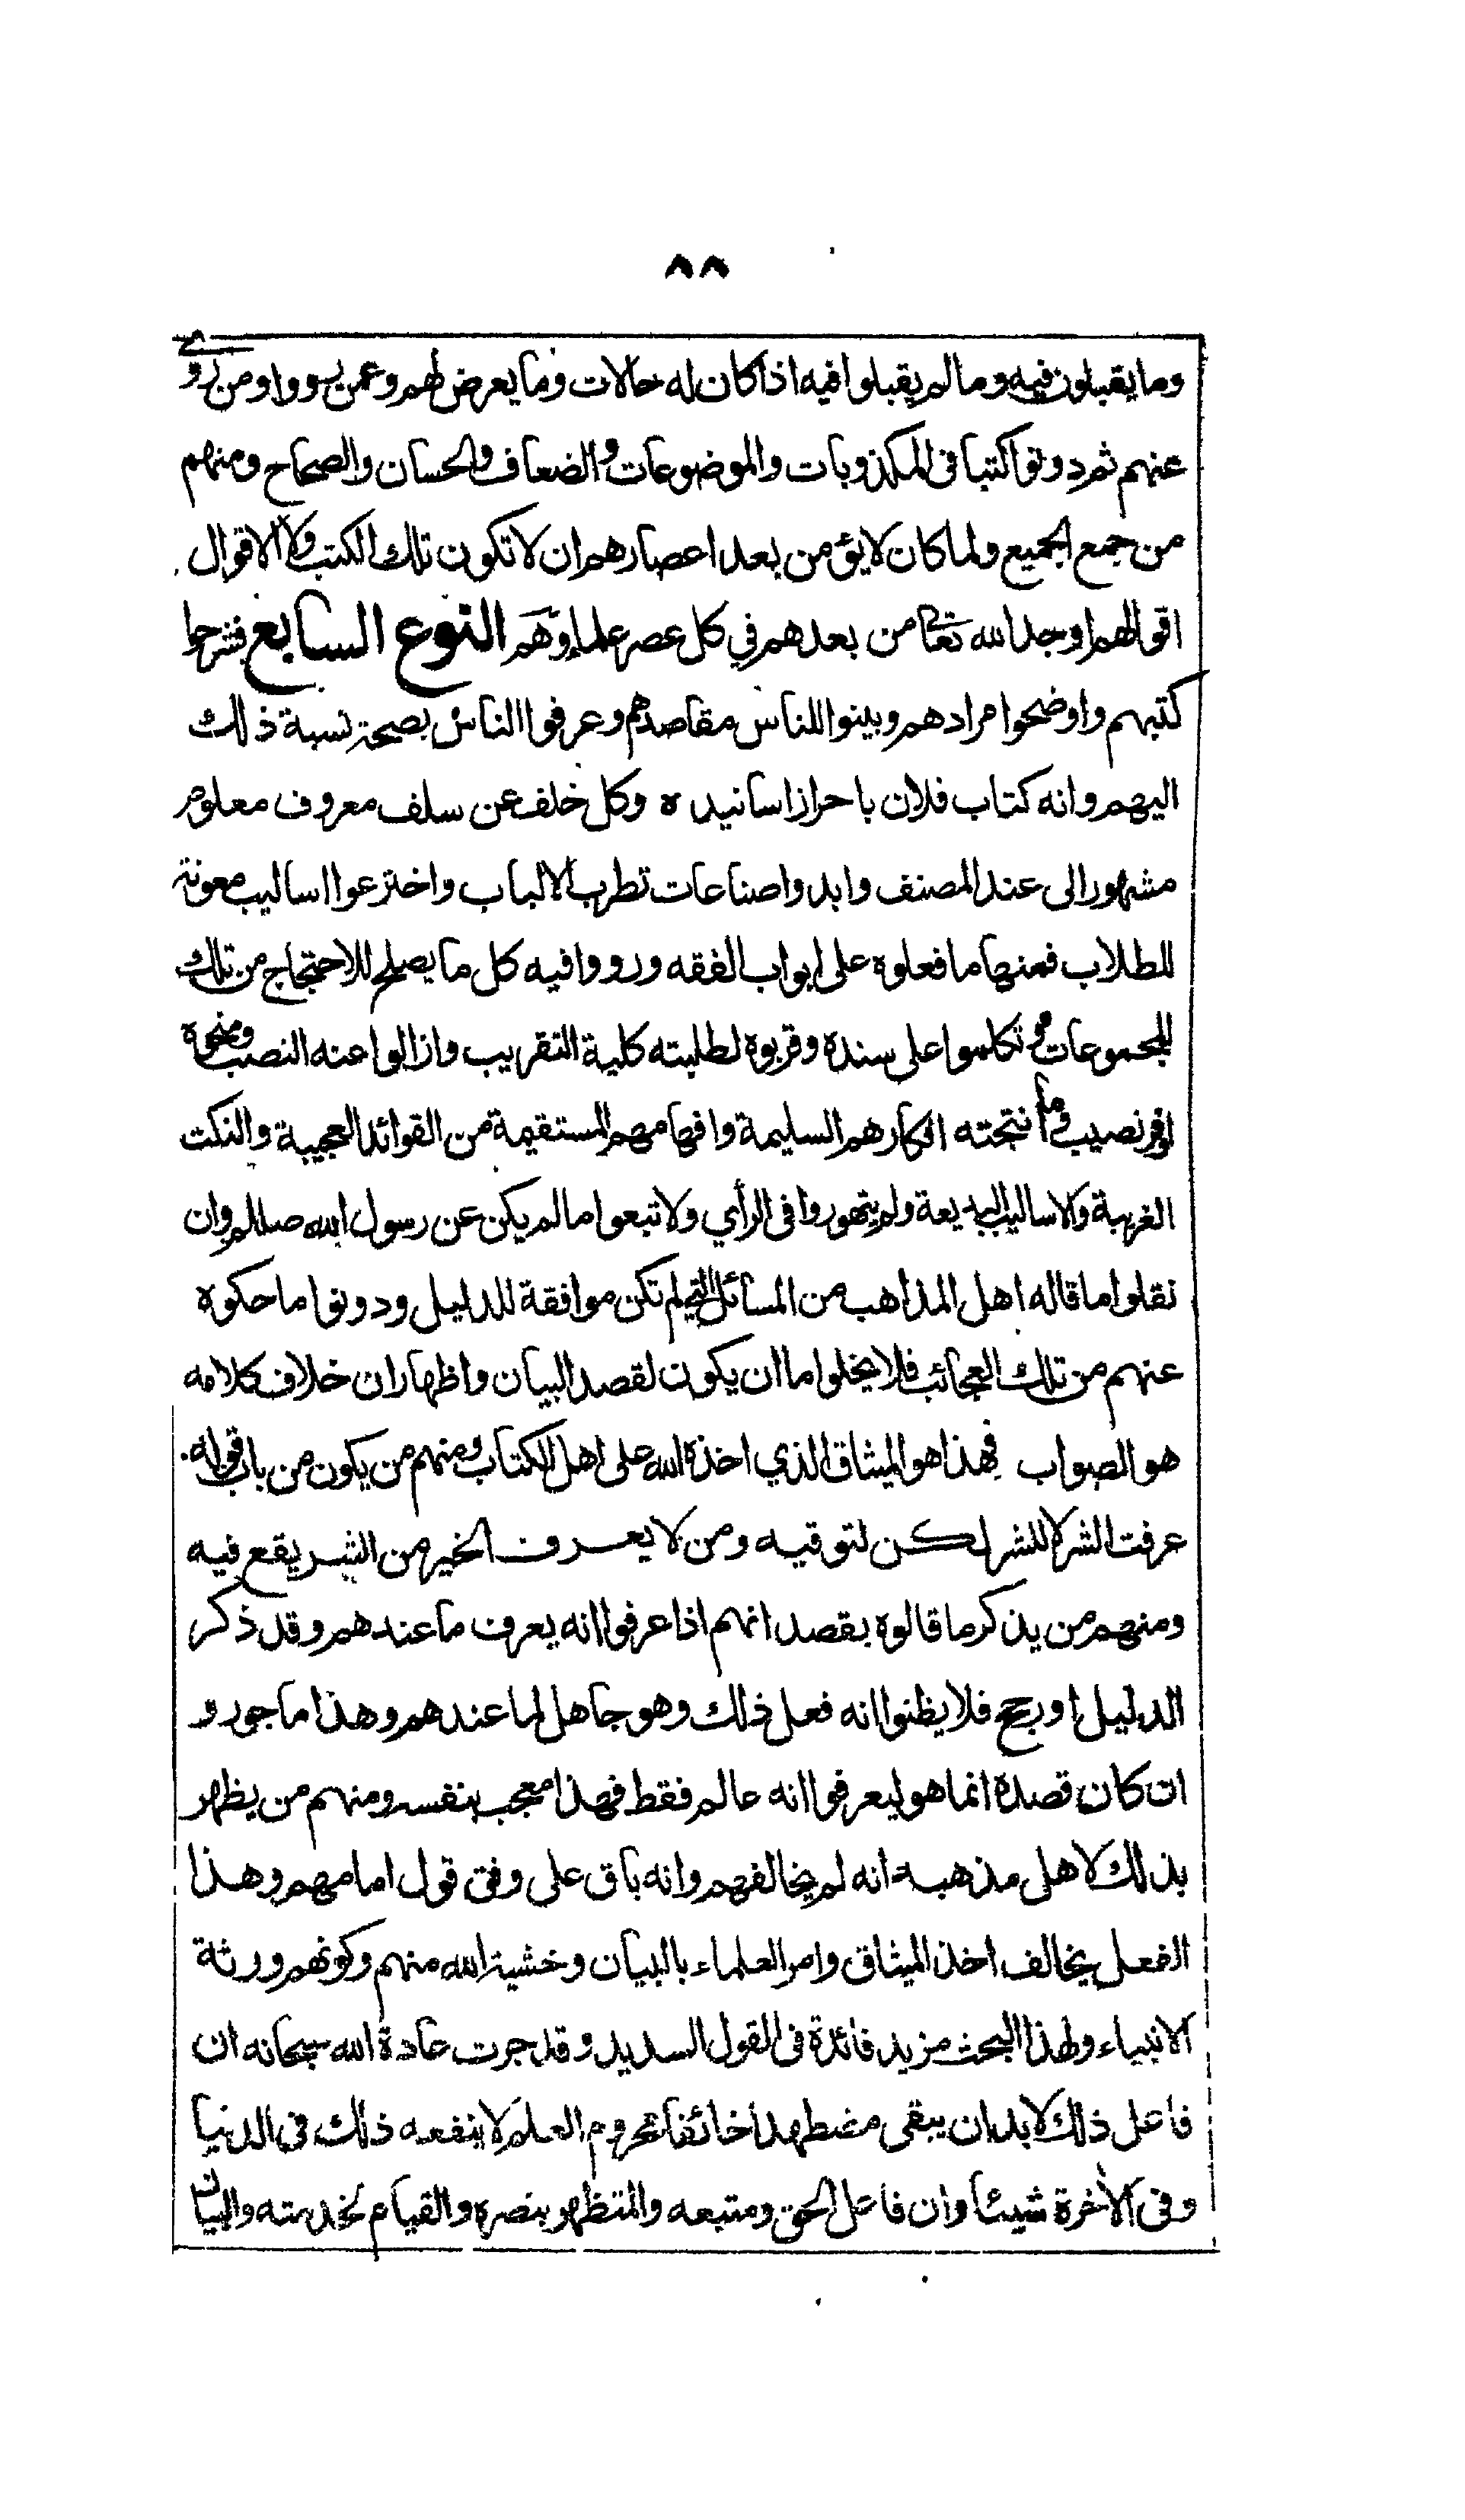 ٨٨
وما يقبلون فيه وما لم يقبلوا فيه اذا كان له حالات وما يعرض لهم وعمن رووا ومن روى
عنهم ثم دونوا كتبا فى المكذوبات والموضوعات والضعاف والحسان والصحاح ومنهم
من جمع الجميع ولما كان لا يؤمن بعد اعصارهم ان لا تكون تلك الكتب ولا الاقوال
اقوالهم اوجد الله تعالى من بعدهم في كل عصر علماء وهم النوع السابع فشرحوا
كتبهم واوضحوا مرادهم وبينوا للناس مقاصدهم وعرفوا الناس بصحة نسبة ذلك
اليهم وانه كتاب فلان باحراز اسانيده وكل خلف عن سلف معروف معلوم
مشهور الى عند المصنف وابدوا صناعات تطرب الالباب واخترعوا اساليب معونة
للطلاب فمنها ما فعلوه على ابواب الفقه ورووا فيه كل ما يصلح للاحتجاج من تلك
المجموعات وتكلموا على سنده وقربوه لطلبته كلية التقريب وازالوا عنه النصب ومنحوه
اوفر نصيب مما انتجته افكارهم السليمة وافهامهم المستقيمة من الفوائد العجيبة والنكت
الغريبة والاساليب البديعة ولم يتهوروا فى الرأي ولا تبعوا ما لم يكن عن رسول الله صللم وان
نقلوا ما قاله اهل المذاهب من المسائل التي لم تكن موافقة للدليل ودونوا ما حكوه
عنهم من تلك العجائب فلا يخلوا ما ان يكون لقصد البيان واظهار ان خلاف كلامه
هو الصواب فهذا هو الميثاق الذي اخذه الله على اهل الكتاب ومنهم من يكون من باب قوله
عرفت الشر لا للشر لكن لتوقيه ومن لا يعرف الخير من الشر يقع فيه
ومنهم من يذكر ما قالوه بقصد انهم اذا عرفوا انه يعرف ما عندهم وقد ذكر
الدليل او رجح فلا يظنوا انه فعل ذلك وهو جاهل لما عندهم وهذا ماجور و
ان كان قصده انما هو ليعرفوا انه عالم فقط فهذا معجب بنفسه ومنهم من يظهر
بذلك لاهل مذهبه انه لم يخالفهم وانه باق على وفق قول امامهم وهذا
الفعل يخالف اخذ الميثاق وامر العلماء بالبيان وخشية الله منهم وكونهم ورثة
الانبياء ولهذا البحث مزيد فائدة فى القول السديد وقد جرت عادة الله سبحانه ان
فاعل ذلك لا بد ان يبقى مضطهدا خائفا محروم العلم لا ينفعه ذلك فى الدنيا
وفى الآخرة شيئا وان فاعل الحق ومتبعه والمتظهر بنصره والقيام بخدمته والبيان